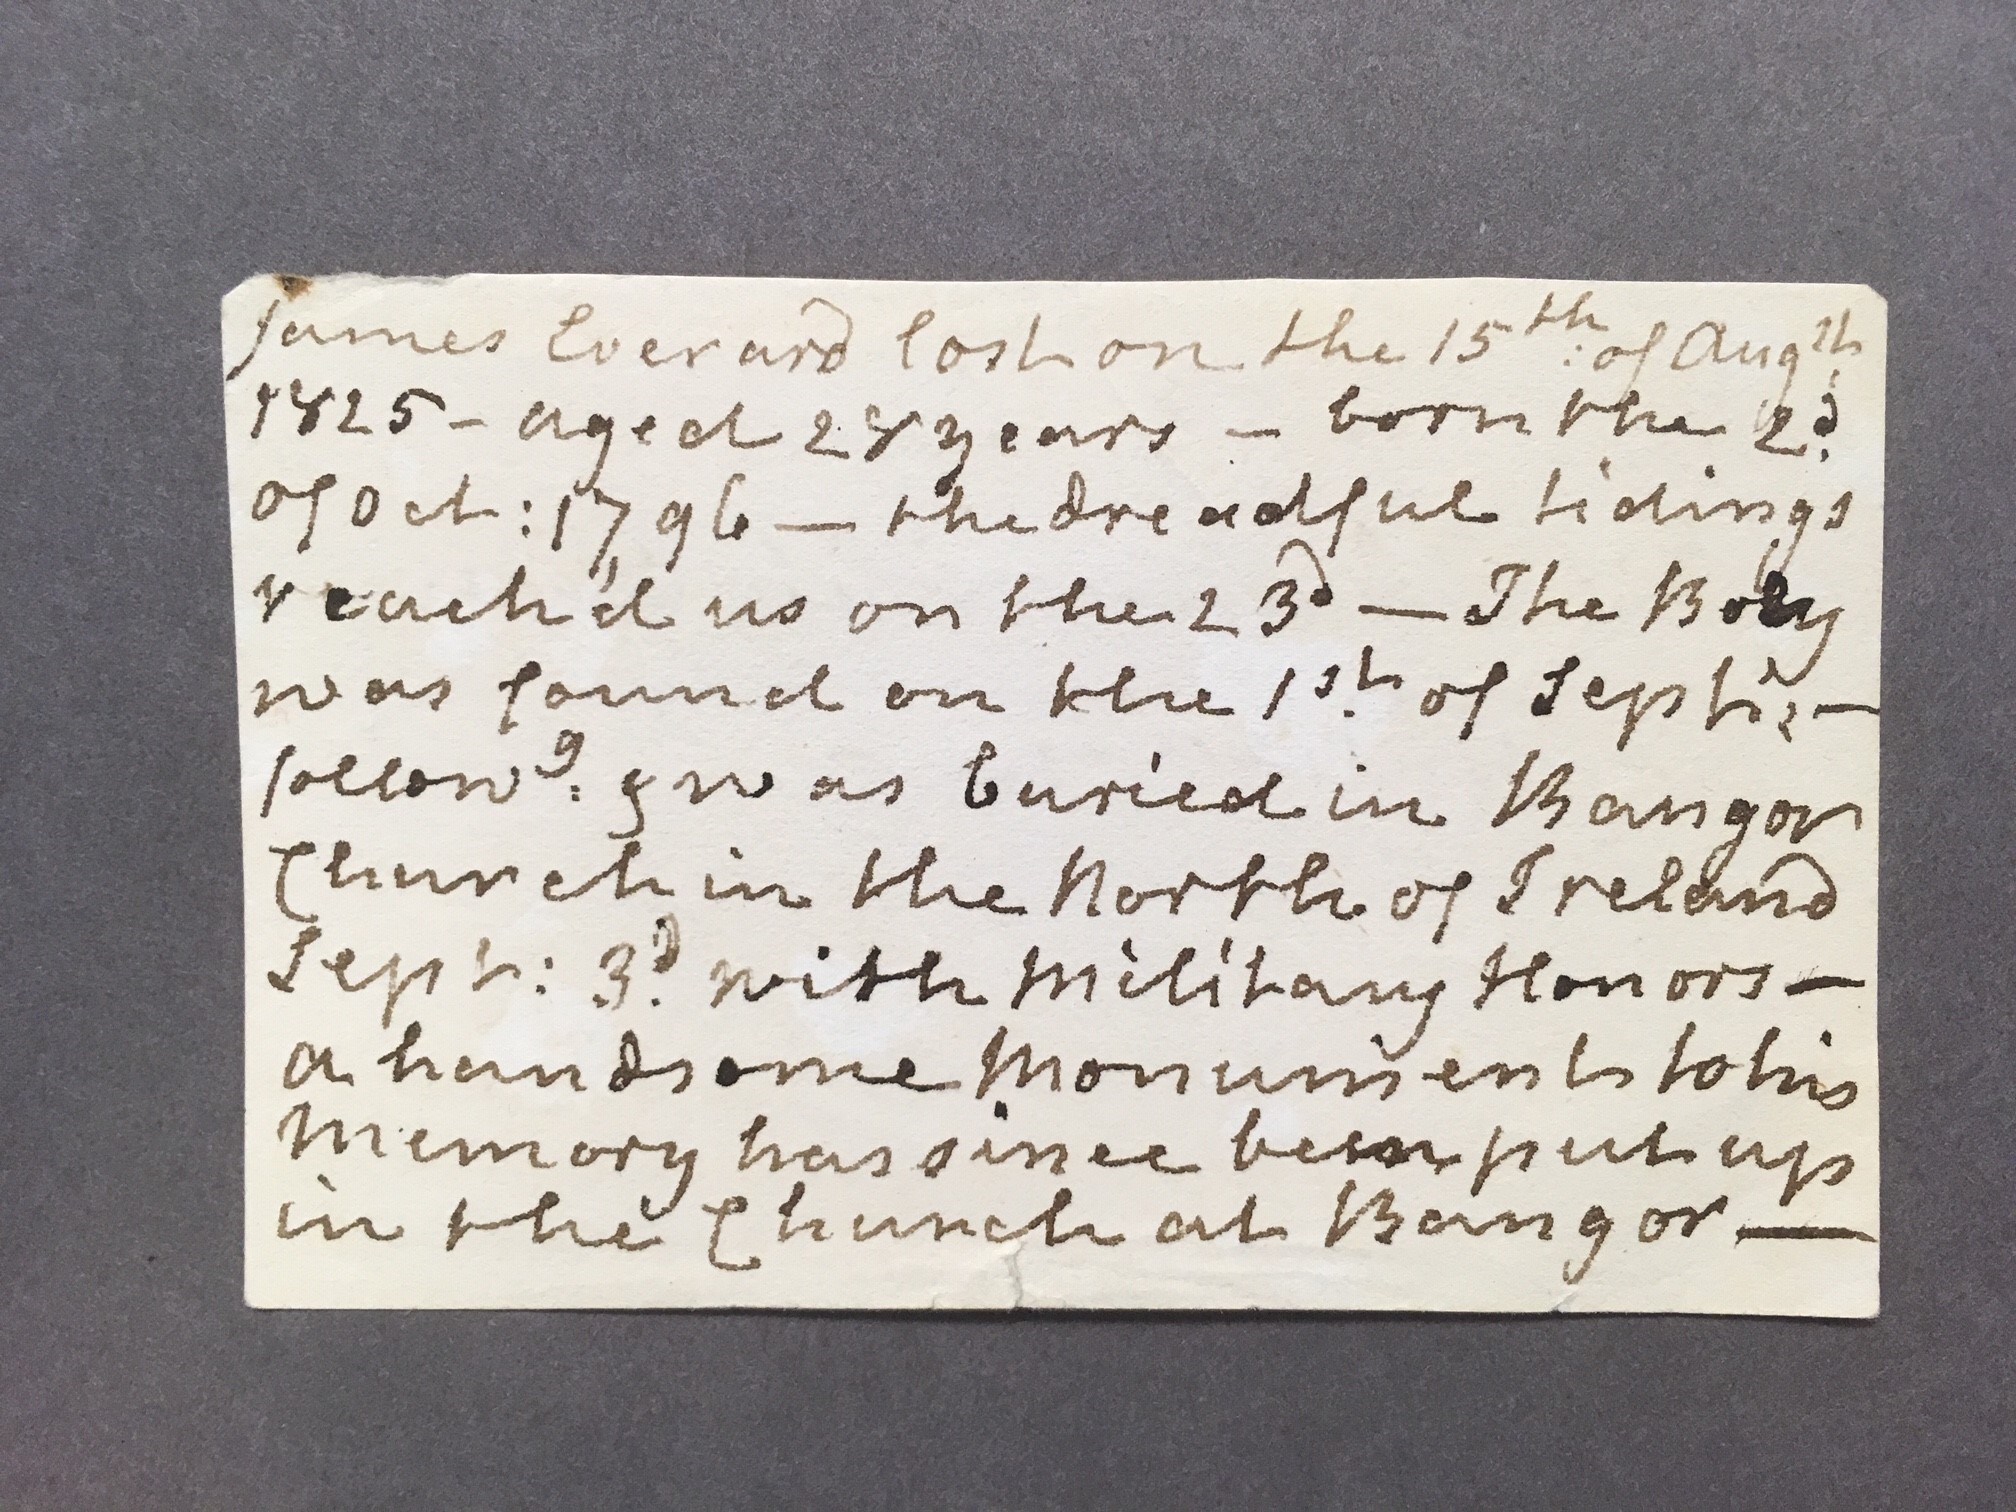 James Everard lost on the 15th: of Augst:
1825 - aged 28 years - born the 2d:
of Oct: 1796 — the dreadful tidings
reach'd us on the 23d — The Body
was found on the 1st: of Septr: —
followg: & was buried in Bangor
Church in the North of Ireland
Sept: 3d: with Military Honors —
a handsome Monument to his
Memory has since been put up
in the Church at Bangor —